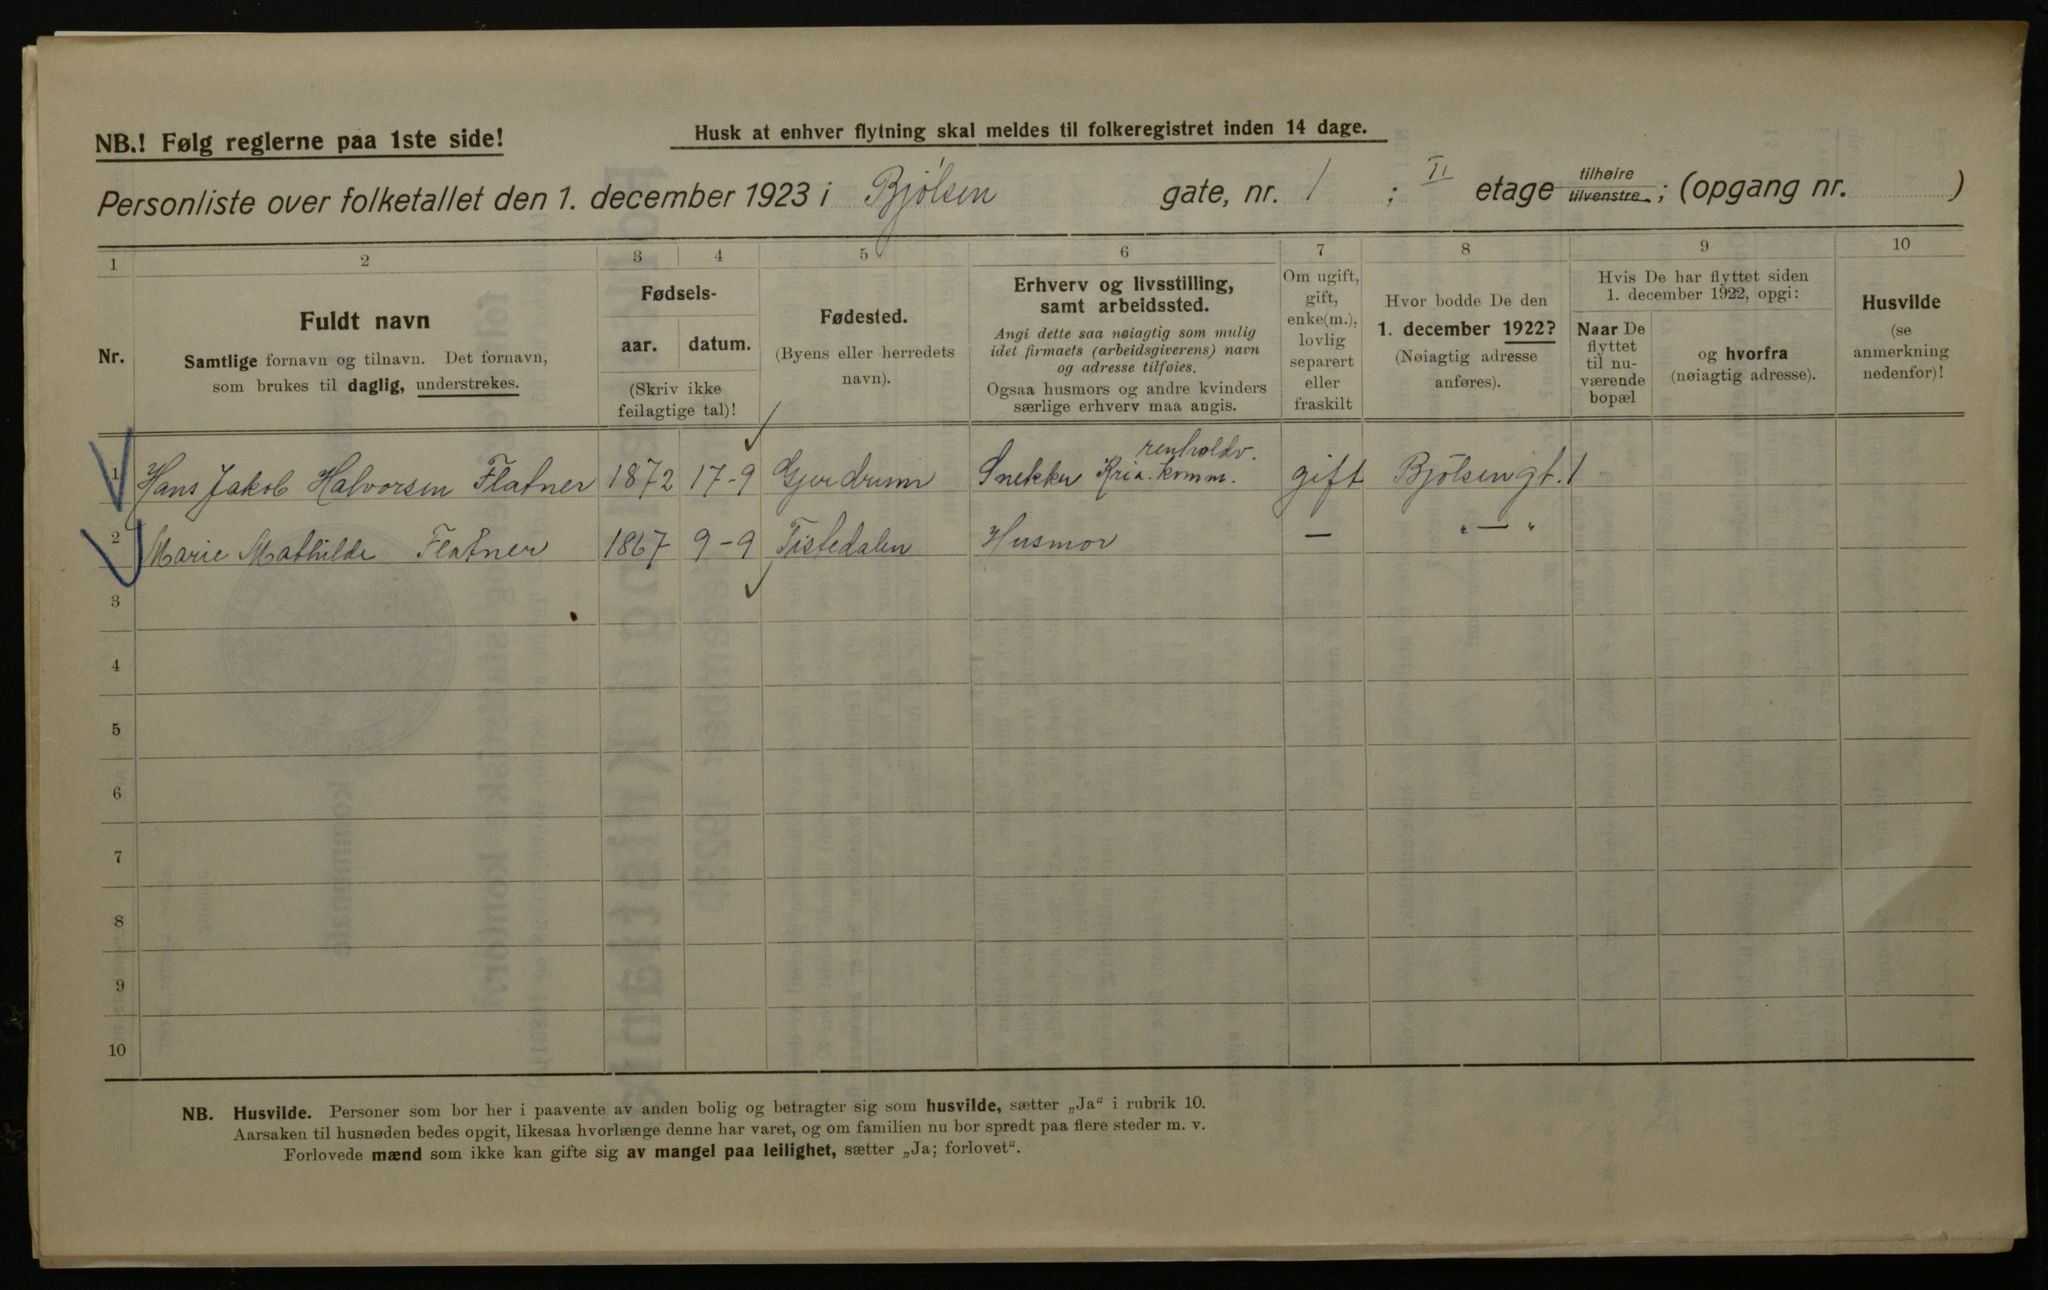 NB.! Følg reglerne paa 1ste side!
Husk at enhver flytning skal meldes til folkeregistret inden 14 dage.
Personliste over folketallet den 1. december 1923 i Bjølsen gate, nr. 1 ; II etage tilhøire tilvenstre. ; (opgang nr. )
1 2 3 4 5 6 7 8 9 10
Nr.
Fuldt navn
Samtlige fornavn og tilnavn. Det fornavn,
som brukes til daglig, understrekes.
Fødsels-
aar. datum.
(Skriv ikke
feilagtige tal)!
Fødested.
(Byens eller herredets
navn).
Erhverv og livsstilling,
samt arbeidssted.
Angi dette saa nøiagtig som mulig
idet firmaets (arbeidsgiverens) navn
og adresse tilføies.
Ogsaa husmors og andre kvinders
særlige erhverv maa angis.
Om ugift,
gift,
enke(m.),
lovlig
separert
eller
fraskilt
Hvor bodde De den
1. december 1922?
(Nøiagtig adresse
anføres).
Hvis De har flyttet siden
1. december 1922, opgi:
Naar De
flyttet
til nu-
værende
bopæl
og hvorfra
(nøiagtig adresse).
Husvilde
(se
anmerkning
nedenfor)!
renholdv.
1 Hans Jakob Halvorsen Flatner 1872 17-9 Gjerdrum Snekker Kria. komm. gift Bjølsengt. 1
2 Marie Mathilde Flatner 1867 9-9 Tistedalen Husmor — " — "
3
4
5
6
7
8
9
10
NB. Husvilde. Personer som bor her i paavente av anden bolig og betragter sig som husvilde, sætter „Ja“ i rubrik 10.
Aarsaken til husnøden bedes opgit, likesaa hvorlænge denne har varet, og om familien nu bor spredt paa flere steder m. v.
Forlovede mænd som ikke kan gifte sig av mangel paa leilighet, sætter „Ja; forlovet“.